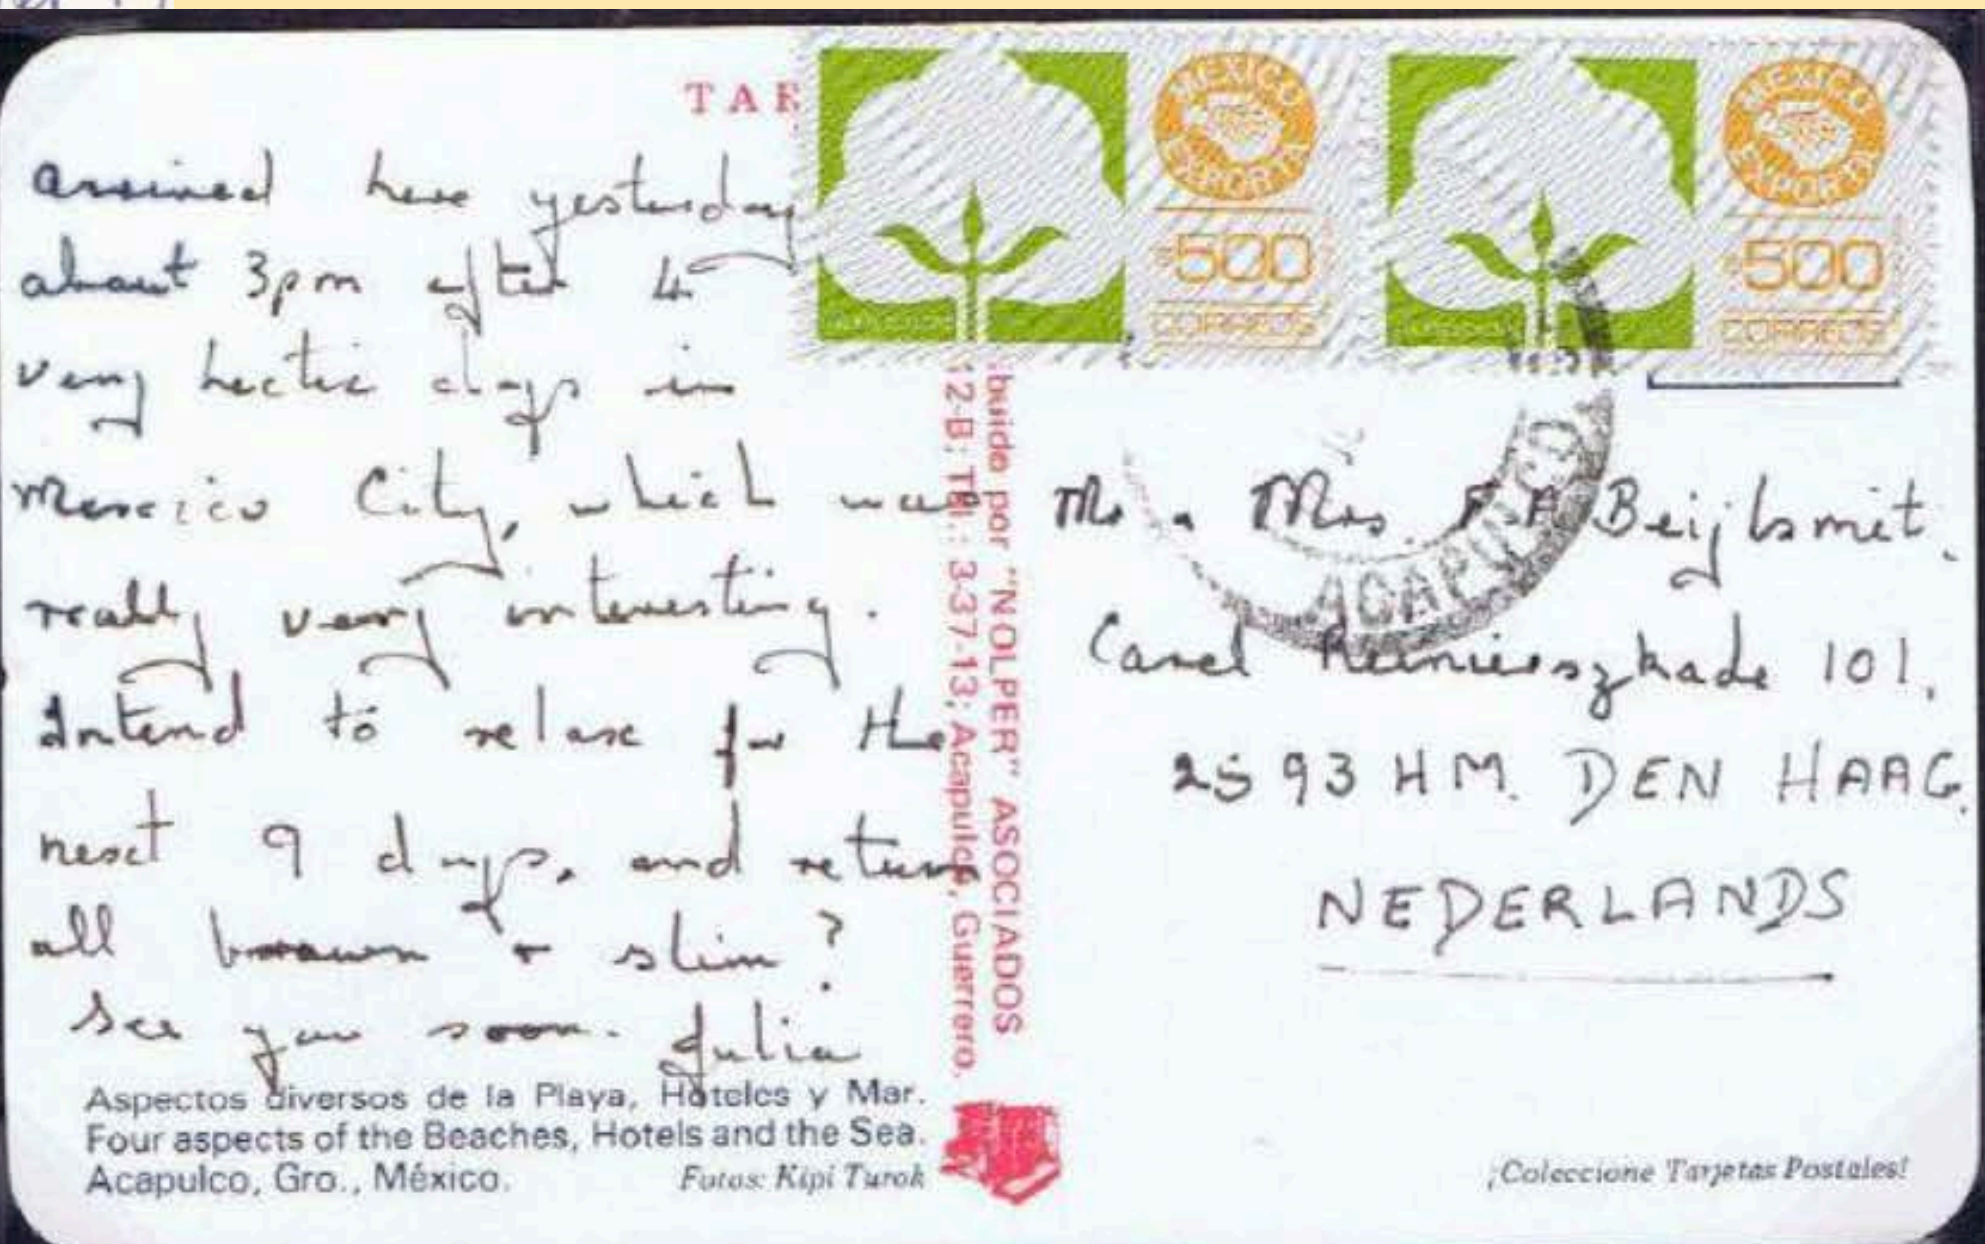 TAR
arrived here yesterday
about 3pm after 4
very hectic days in
Mexico City, which was
really very interesting.
Intend to relax for the
next 9 days, and return
all brown & slim?
See you soon. Julia
Aspectos diversos de la Playa, Hoteles y Mar.
Four aspects of the Beaches, Hotels and the Sea.
Acapulco, Gro., México.
Fotos: Kipi Turok
buido por "NOLPER" ASOCIADOS
12-B; Tel.: 3-37-13; Acapulco, Guerrero.
MEXICO
EXPORTA
500
CORREOS
MEXICO
EXPORTA
500
CORREOS
ACAPULCO
Mr & Mrs. F.A. Beijlsmit.
Carel Reinierszkade 101.
2593 HM. DEN HAAG.
NEDERLANDS
¡Coleccione Tarjetas Postales!